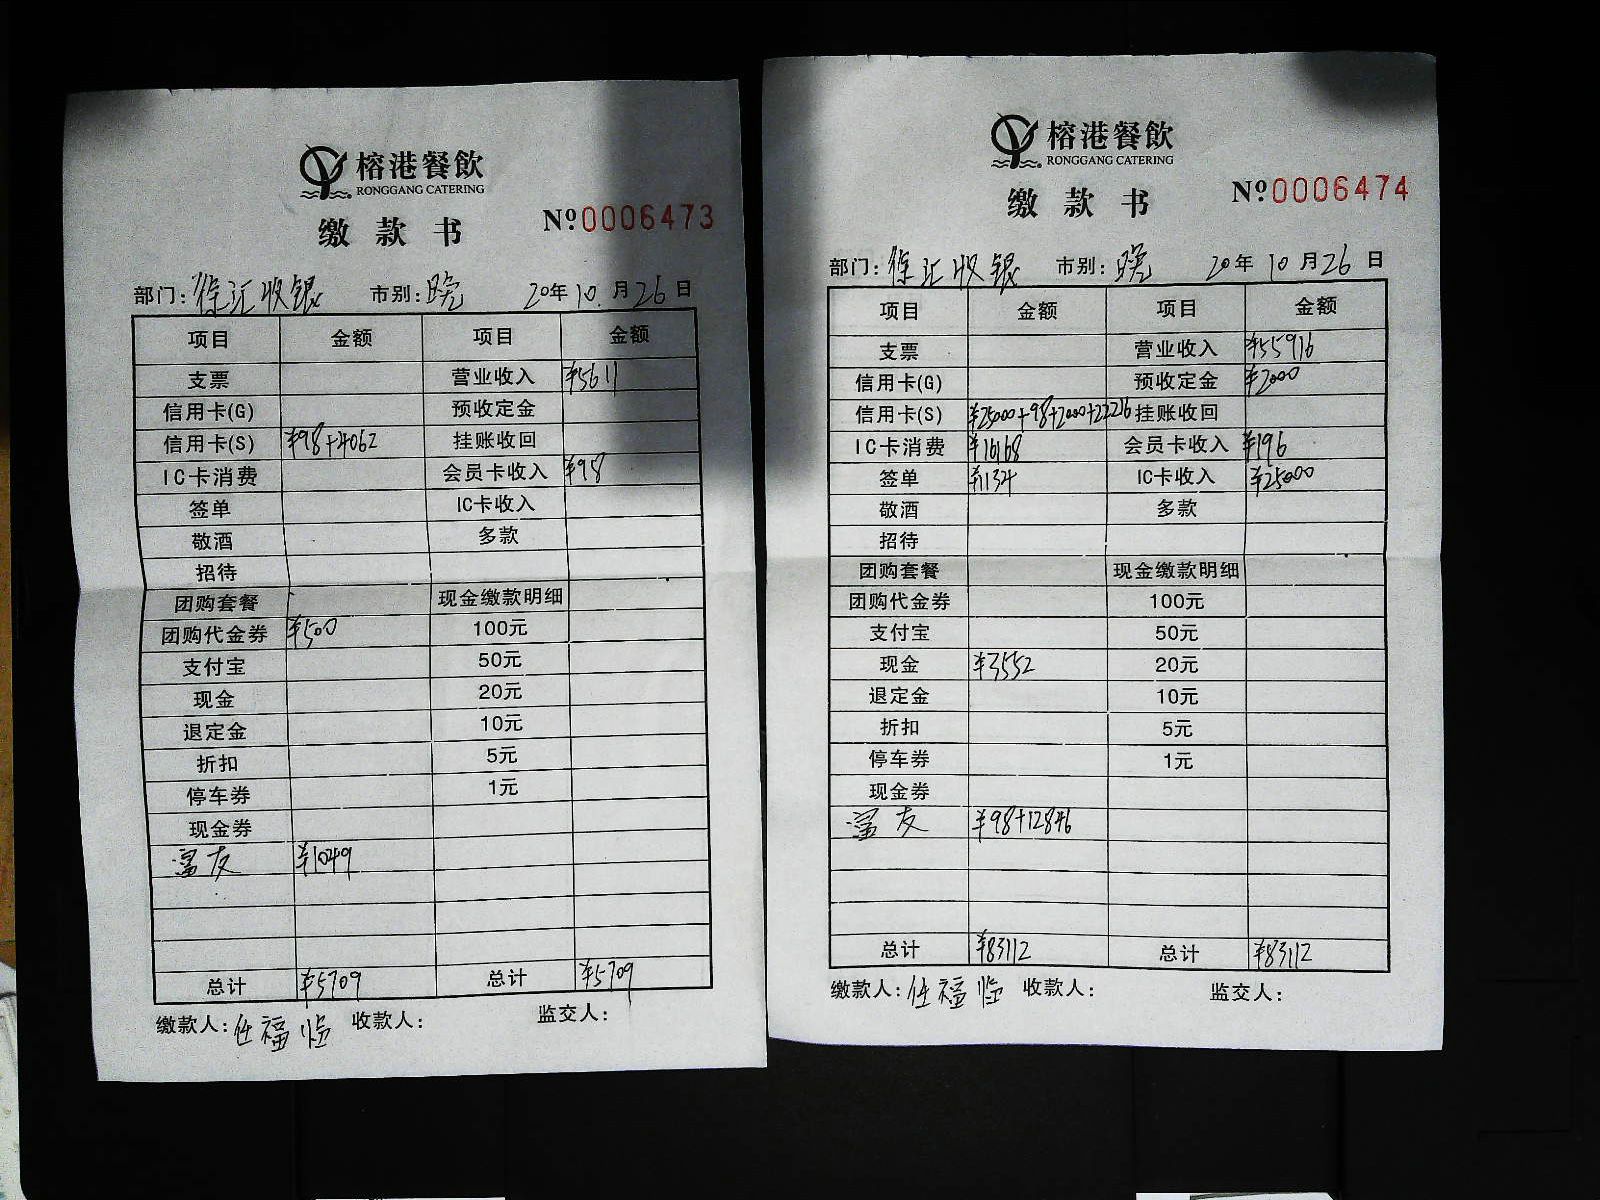 榕港餐飲
RONGGANG CATERING
缴款书
№0006473
部门：徐汇收银 市别：晚 20年10月26日
项目 金额 项目 金额
支票 营业收入 ¥5611
信用卡(G) 预收定金
信用卡(S) ¥98+4062 挂账收回
IC卡消费 会员卡收入 ¥98
签单 IC卡收入
敬酒 多款
招待
团购套餐 现金缴款明细
团购代金券 ¥500 100元
支付宝 50元
现金 20元
退定金 10元
折扣 5元
停车券 1元
现金券
富友 ¥1049
总计 ¥5709 总计 ¥5709
缴款人：任福临 收款人： 监交人：
榕港餐飲
RONGGANG CATERING
缴款书
№0006474
部门：徐汇收银 市别：晚 20年10月26日
项目 金额 项目 金额
支票 营业收入 ¥55916
信用卡(G) 预收定金 ¥2000
信用卡(S) ¥25000+98+2000+22216 挂账收回
IC卡消费 ¥16168 会员卡收入 ¥196
签单 ¥1134 IC卡收入 ¥25000
敬酒 多款
招待
团购套餐 现金缴款明细
团购代金券 100元
支付宝 50元
现金 ¥3552 20元
退定金 10元
折扣 5元
停车券 1元
现金券
富友 ¥98+12846
总计 ¥83112 总计 ¥83112
缴款人：任福临 收款人： 监交人：